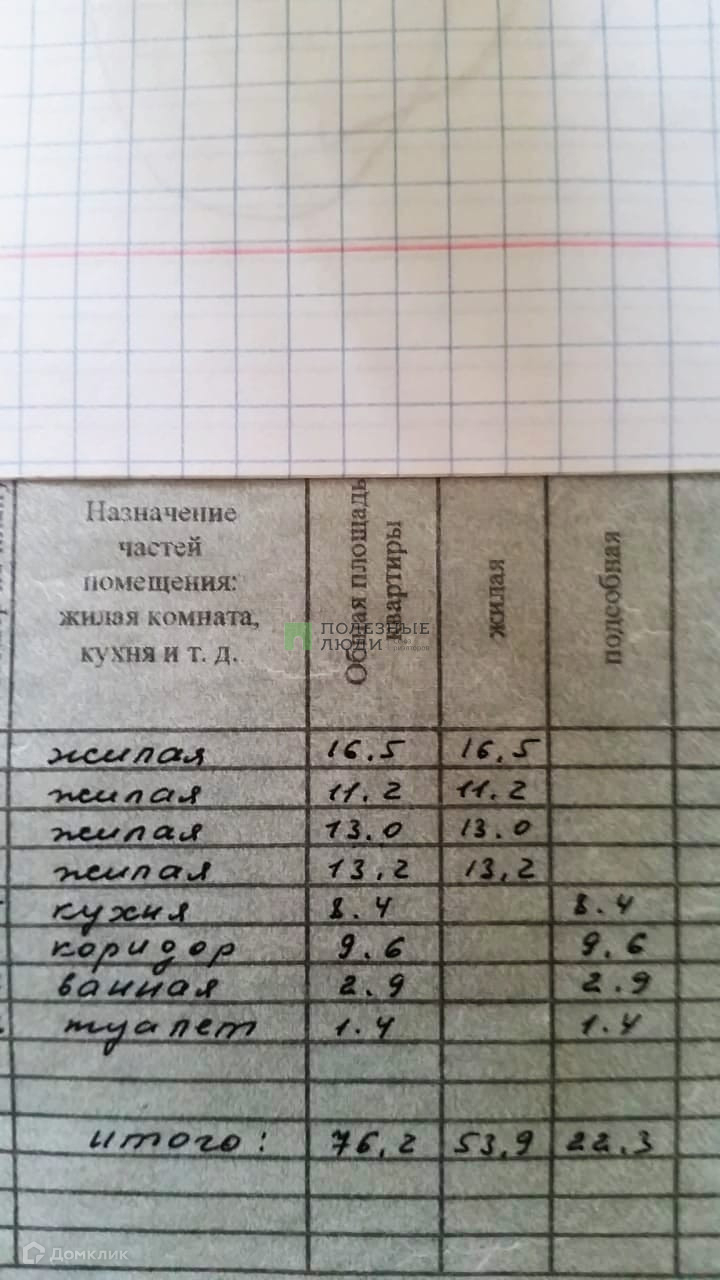 Назначение
частей
помещения:
жилая комната,
кухня и т. д.
Общая площадь
квартиры
жилая
подсобная
ПОЛЕЗНЫЕ
ЛЮДИ
жилая 16.5 16,5
жилая 11.2 11.2
жилая 13.0 13.0
жилая 13,2 13,2
кухня 8.4 8.4
коридор 9.6 9.6
ванная 2.9 2.9
туалет 1.4 1.4
итого: 76,2 53,9 22.3
Домклик